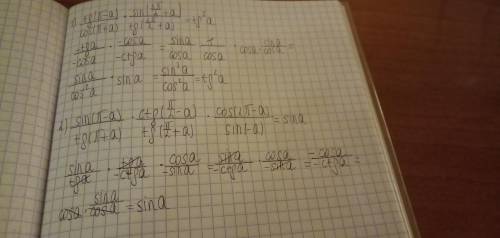 1) tg(π-a)/cos(π+a) · sin(3π/2+a)/tg(3π/2+a) = tg²a
-tga/-cosa · -cosa/-ctga = sina/cosa · 1/cosa · cosa · sina/cosa =
sina/cos²a · sina = sin²a/cos²a = tg²a
2) sin(π-a)/tg(π+a) · ctg(π/2-a)/tg(π/2+a) · cos(2π-a)/sin(-a) = sina
sina/tga · tga/-ctga · cosa/-sina = sina/-ctga · cosa/-sina = -cosa/-ctga =
cosa · sina/cosa = sina